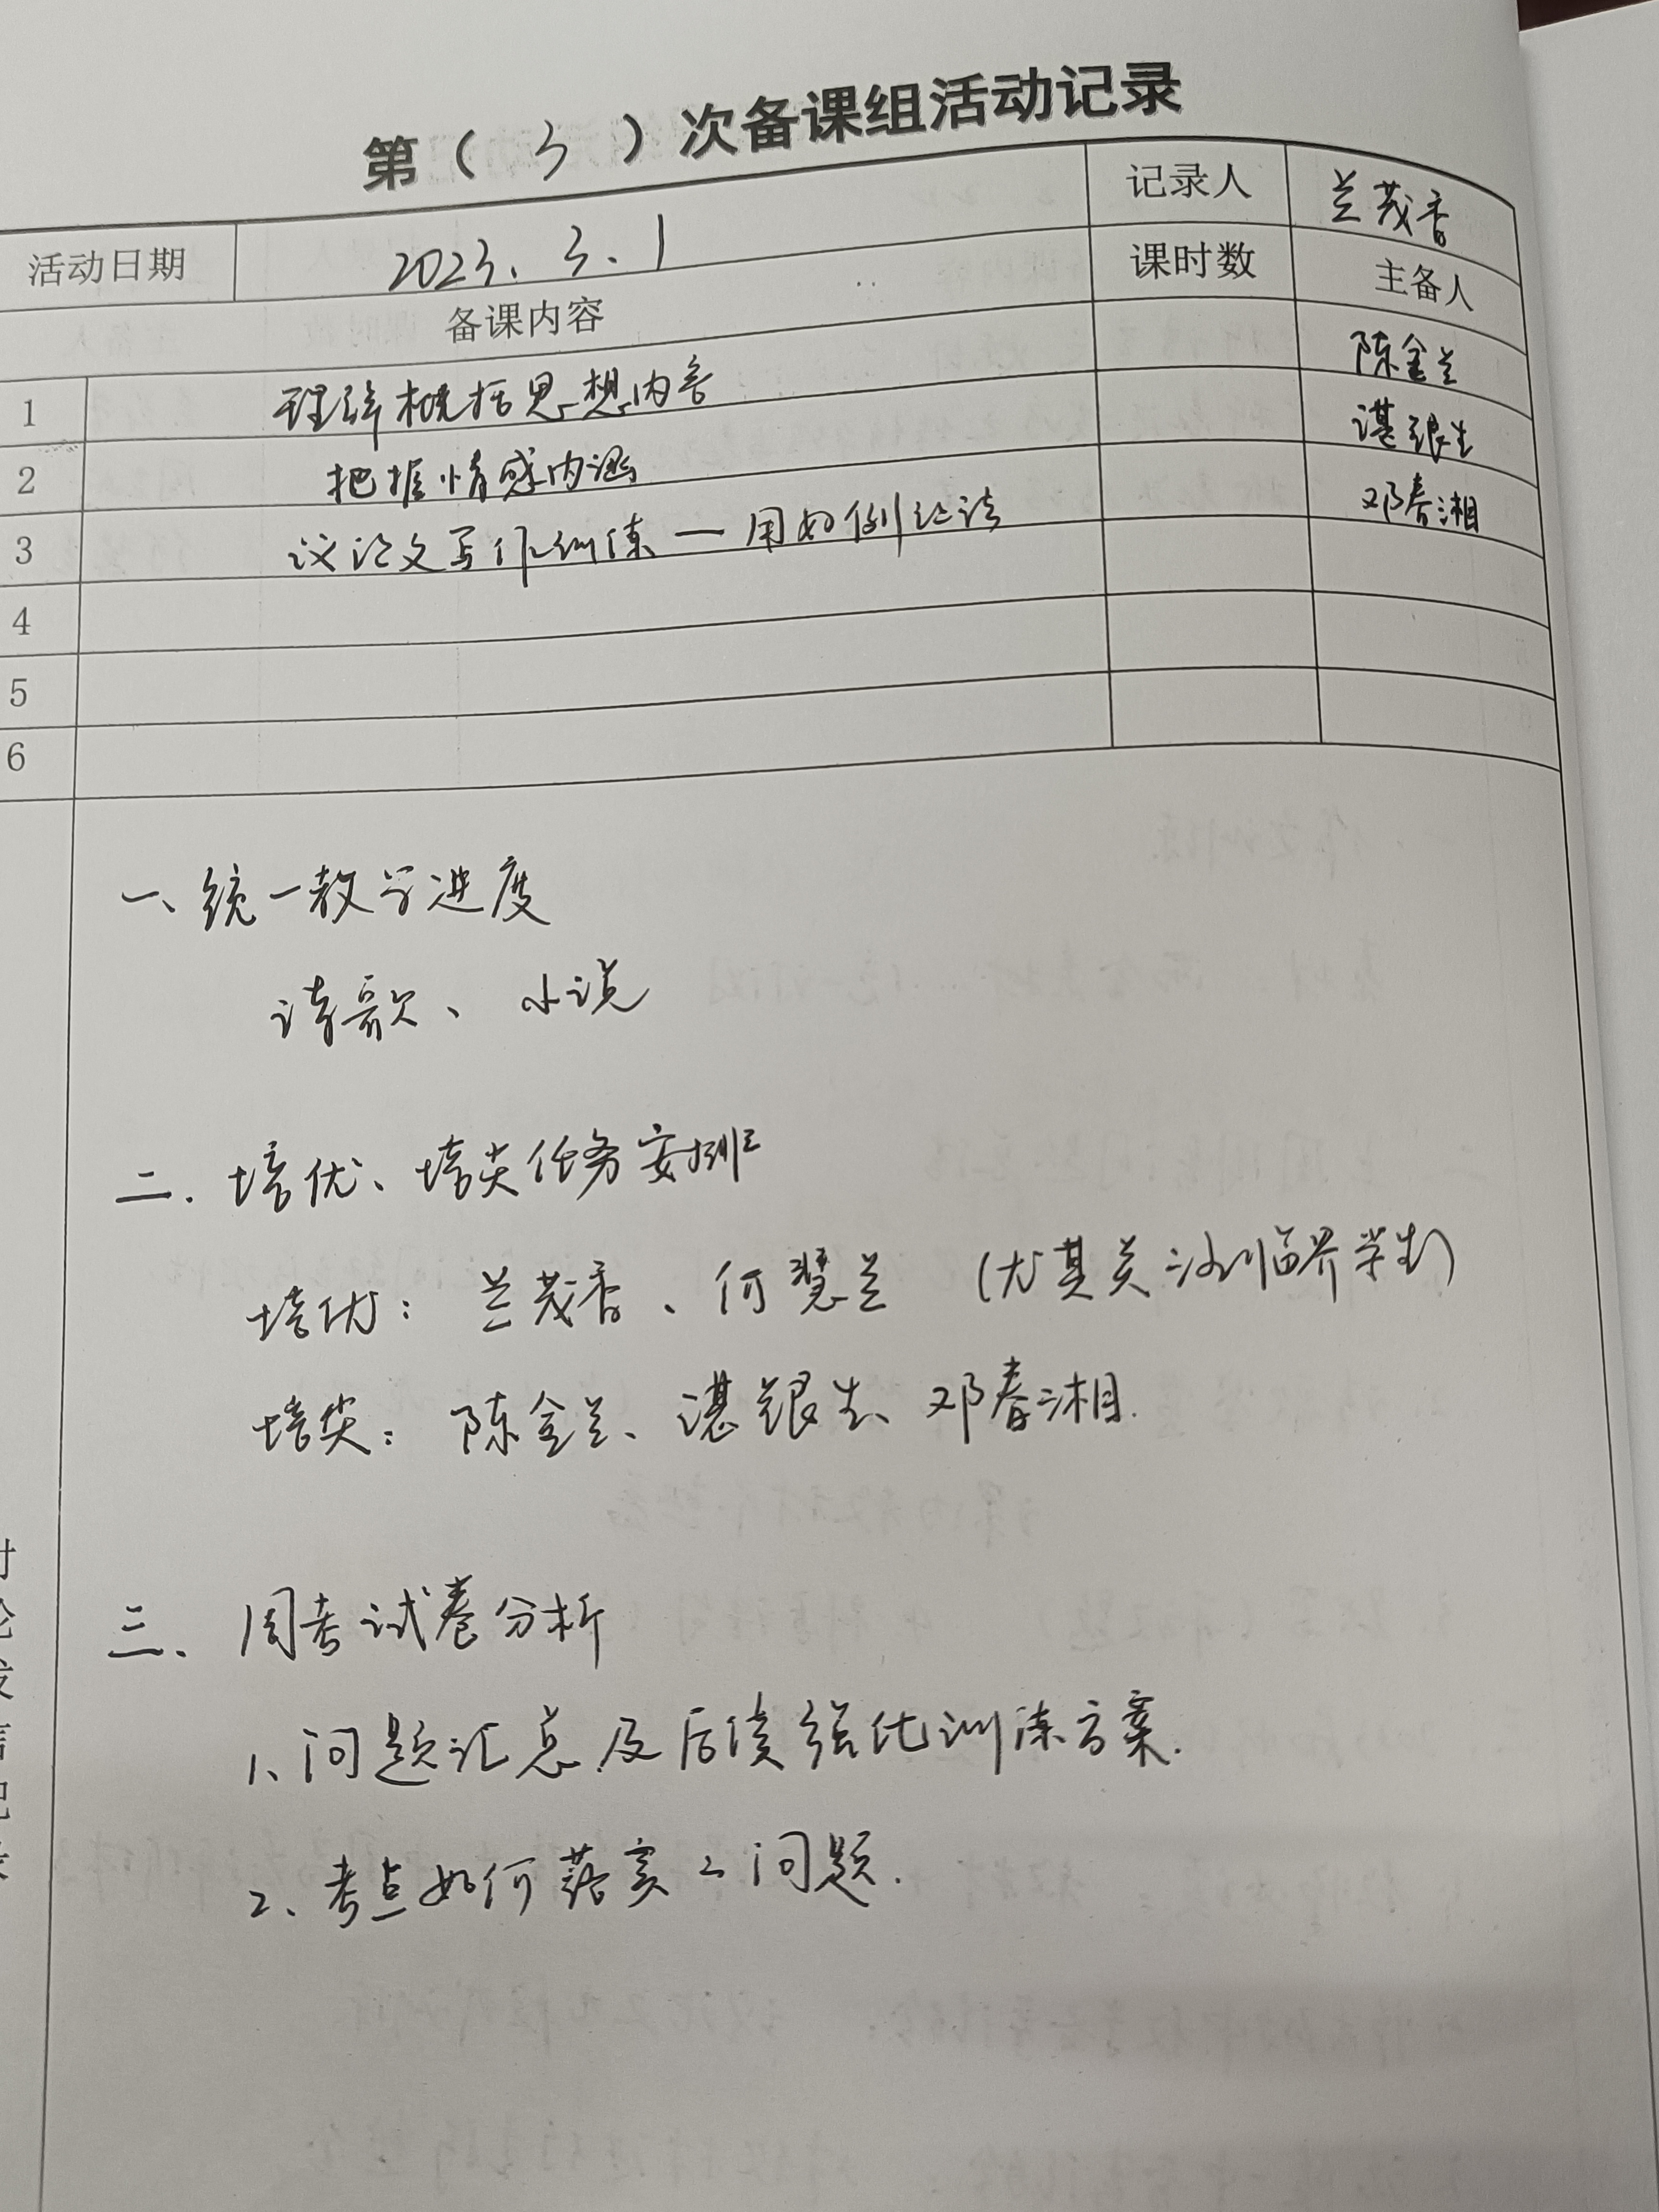 第（3）次备课组活动记录
活动日期 2023.3.1 记录人 兰茂香
备课内容 课时数 主备人
1 理解概括思想内容 陈金兰
2 把握情感内涵 谌银生
3 议论文写作训练—用好例证法 邓春湘
4
5
6
一、统一教学进度
诗歌、小说
二.培优、培尖任务安排
培优：兰茂香、何慧兰（尤其关注临界学生）
培尖：陈金兰、谌银生、邓春湘.
三、周考试卷分析
1、问题汇总及后续强化训练方案.
2、考点如何落实之问题.